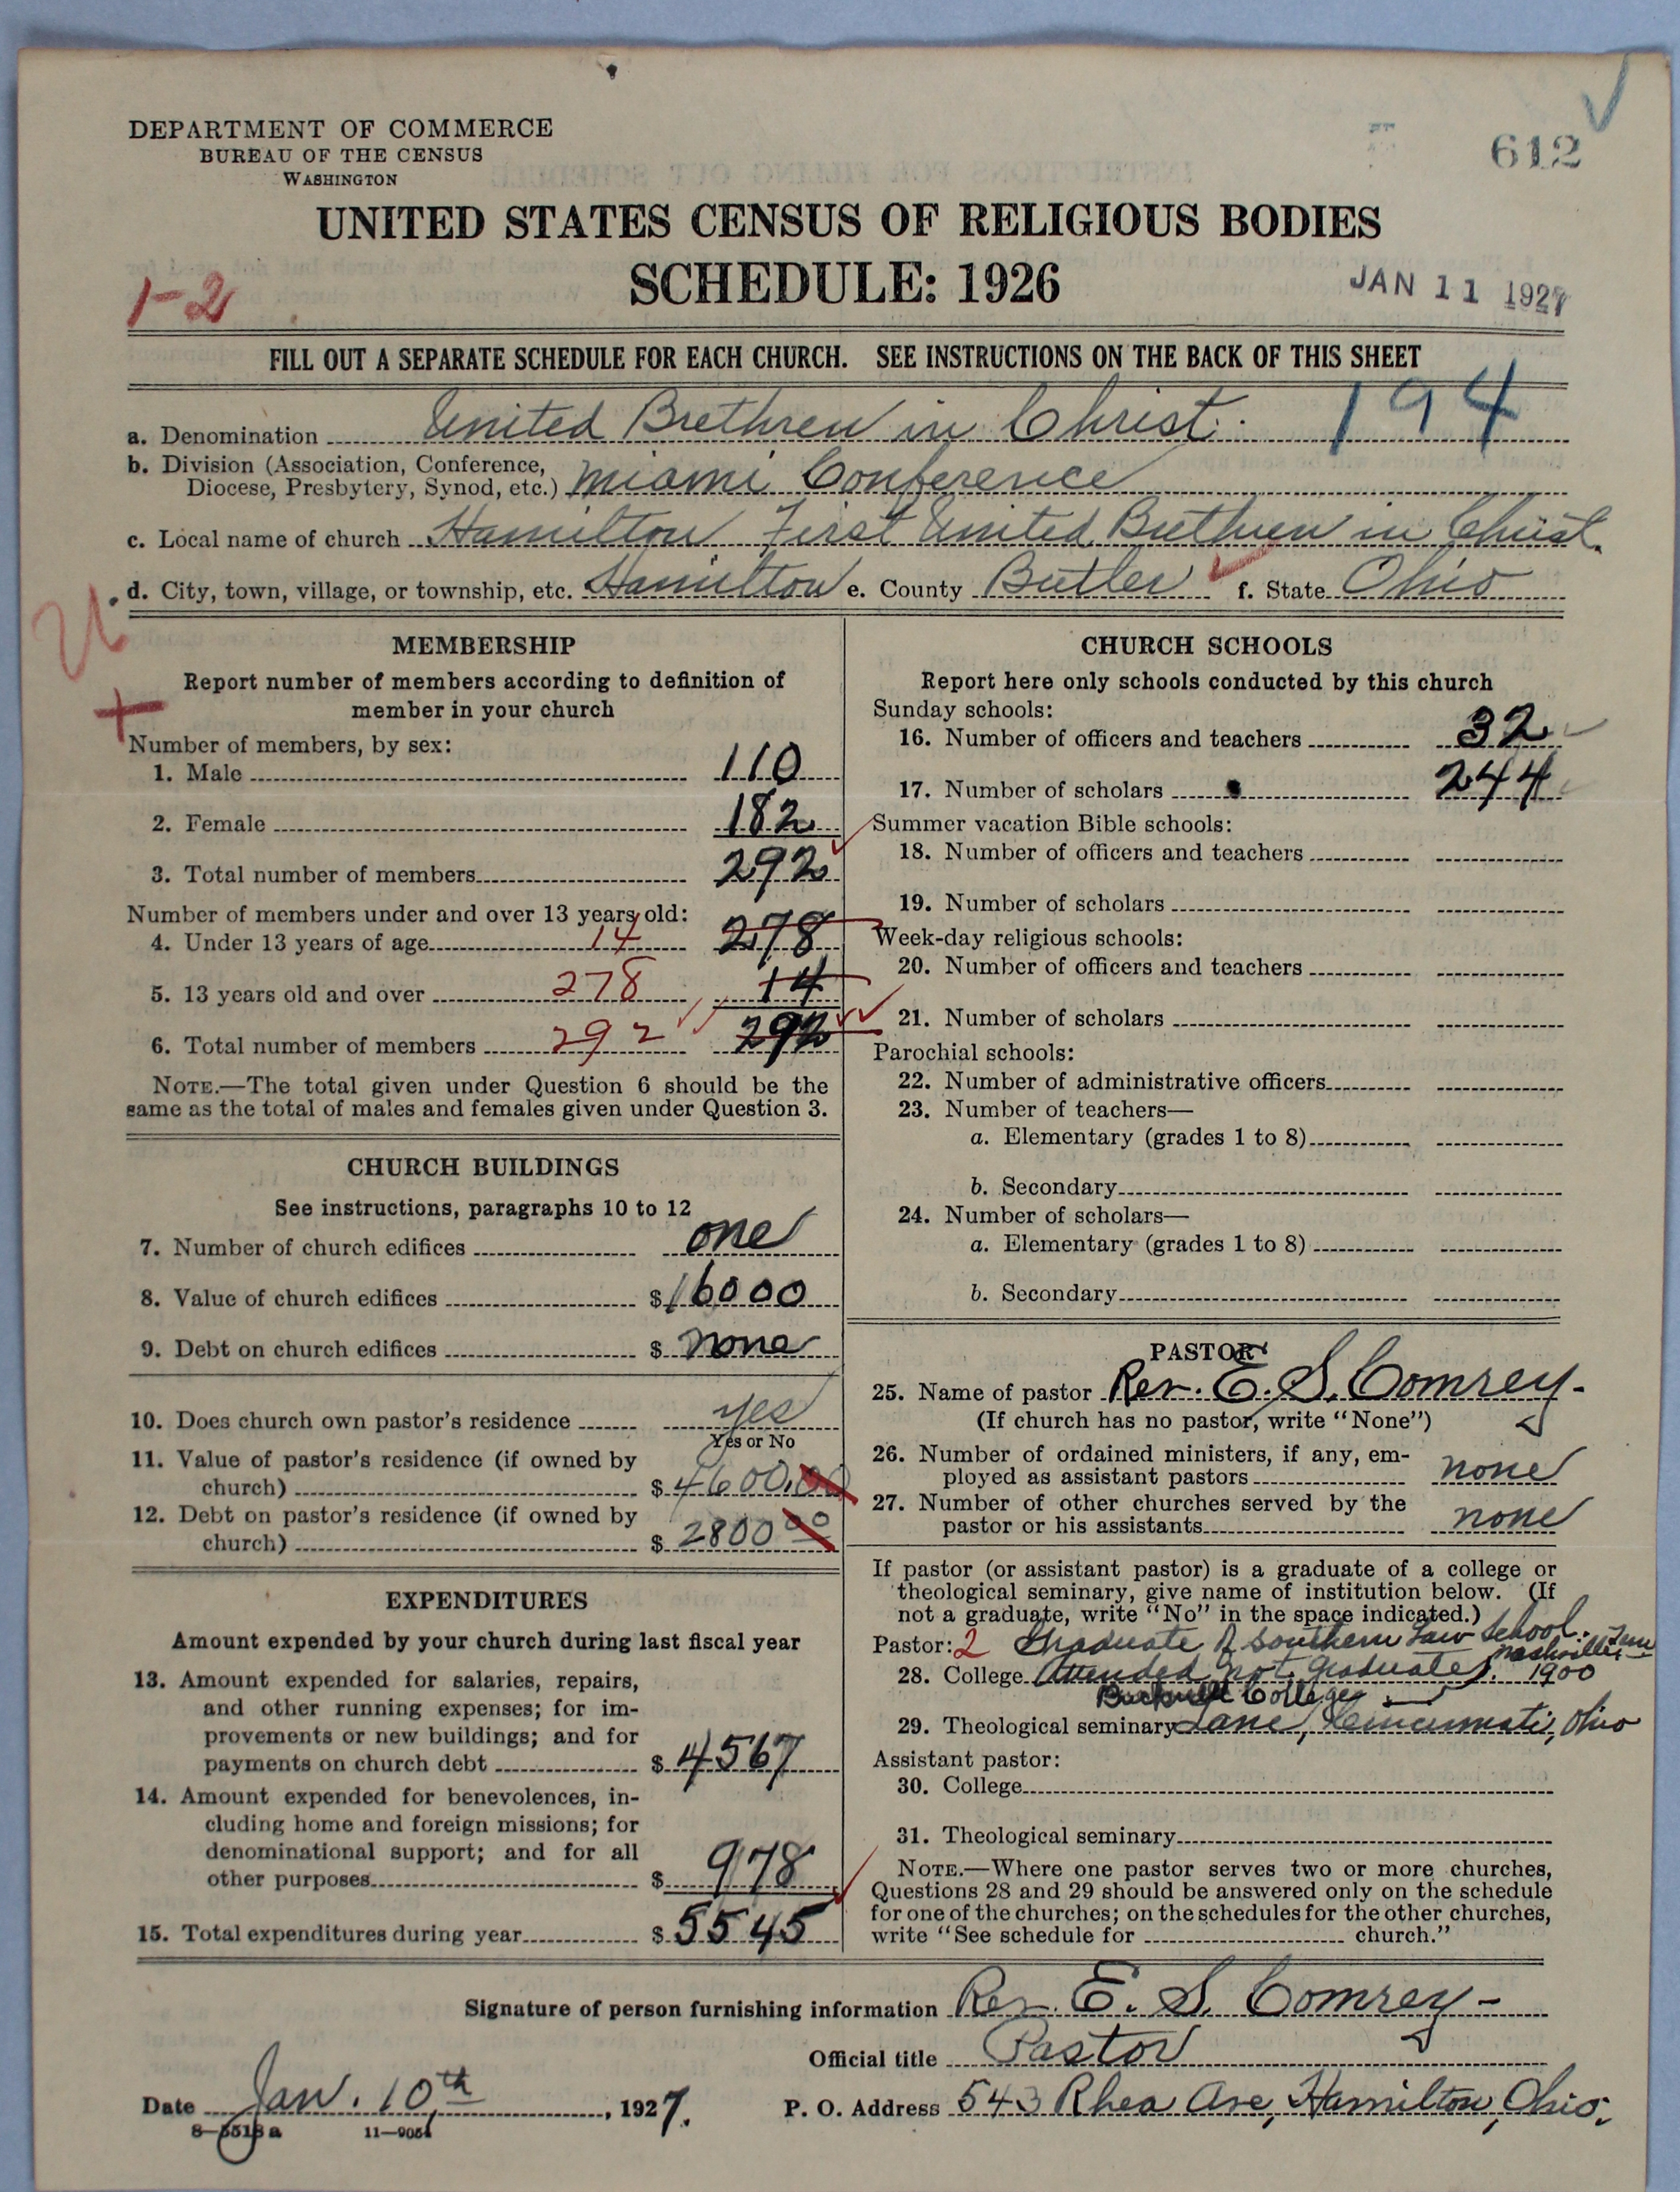 DEPARTMENT OF COMMERCE
BUREAU OF THE CENSUS
WASHINGTON
612
UNITED STATES CENSUS OF RELIGIOUS BODIES
SCHEDULE: 1926
1-2
JAN 11 1927
FILL OUT A SEPARATE SCHEDULE FOR EACH CHURCH. SEE INSTRUCTIONS ON THE BACK OF THIS SHEET
194
a. Denomination United Brethren in Christ.
b. Division (Association, Conference,
Diocese, Presbytery, Synod, etc.) Miami Conference
c. Local name of church Hamilton First United Brethren in Christ.
d. City, town, village, or township, etc. Hamilton e. County Butler f. State Ohio
MEMBERSHIP
Report number of members according to definition of
member in your church
Number of members, by sex:
1. Male 110
2. Female 182
3. Total number of members 292
Number of members under and over 13 years old:
4. Under 13 years of age 14 278
5. 13 years old and over 278 14
6. Total number of members 292 292
NOTE.—The total given under Question 6 should be the
same as the total of males and females given under Question 3.
CHURCH BUILDINGS
See instructions, paragraphs 10 to 12
7. Number of church edifices one
8. Value of church edifices $16000
9. Debt on church edifices $ none
10. Does church own pastor's residence yes
Yes or No
11. Value of pastor's residence (if owned by
church) $4600.00
12. Debt on pastor's residence (if owned by
church) $2800 00
EXPENDITURES
Amount expended by your church during last fiscal year
13. Amount expended for salaries, repairs,
and other running expenses; for im-
provements or new buildings; and for
payments on church debt $4567
14. Amount expended for benevolences, in-
cluding home and foreign missions; for
denominational support; and for all
other purposes $978
15. Total expenditures during year $5545
CHURCH SCHOOLS
Report here only schools conducted by this church
Sunday schools:
16. Number of officers and teachers 32
17. Number of scholars 244
Summer vacation Bible schools:
18. Number of officers and teachers
19. Number of scholars
Week-day religious schools:
20. Number of officers and teachers
21. Number of scholars
Parochial schools:
22. Number of administrative officers
23. Number of teachers—
a. Elementary (grades 1 to 8)
b. Secondary
24. Number of scholars—
a. Elementary (grades 1 to 8)
b. Secondary
PASTOR
25. Name of pastor Rev. E. S. Comrey.
(If church has no pastor, write "None")
26. Number of ordained ministers, if any, em-
ployed as assistant pastors none
27. Number of other churches served by the
pastor or his assistants none
If pastor (or assistant pastor) is a graduate of a college or
theological seminary, give name of institution below. (If
not a graduate, write "No" in the space indicated.)
Pastor: 2 Graduate of Southern Law School. Nashville, Tenn
28. College Attended not graduate. 1900
Bucknell College
29. Theological seminary Lane, Cincinnati, Ohio
Assistant pastor:
30. College
31. Theological seminary
NOTE.—Where one pastor serves two or more churches,
Questions 28 and 29 should be answered only on the schedule
for one of the churches; on the schedules for the other churches,
write "See schedule for church."
Signature of person furnishing information Rev. E. S. Comrey
Official title Pastor
Date Jan. 10th, 1927.
P. O. Address 543 Rhea Ave, Hamilton, Ohio.
8-5513 a 11-9054